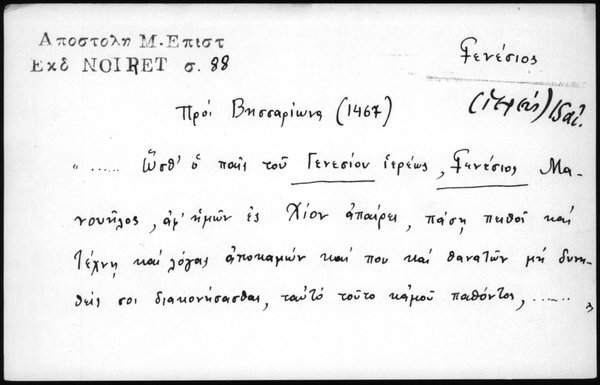 Αποστολη Μ. Επιστ
Εκδ NOIRET σ. 88
Γενέσιος
(ἱερεύς) 15 αἰ.
Πρὸς Βησσαρίωνα (1467)
"...... ὥσθ' ὁ παῖς τοῦ Γενεσίου ἱερέως, Γενέσιος Μα-
νουῆλος, ἀφ' ἡμῶν ἐς Χίον ἀπαίρει, πάσῃ πειθοῖ καὶ
τέχνῃ καὶ λόγοις ἀποκαμὼν καί που καὶ θανατῶν μὴ δυνη-
θείς σοι διακονήσασθαι, ταὐτὸ τοῦτο κἀμοῦ παθόντος, ......"